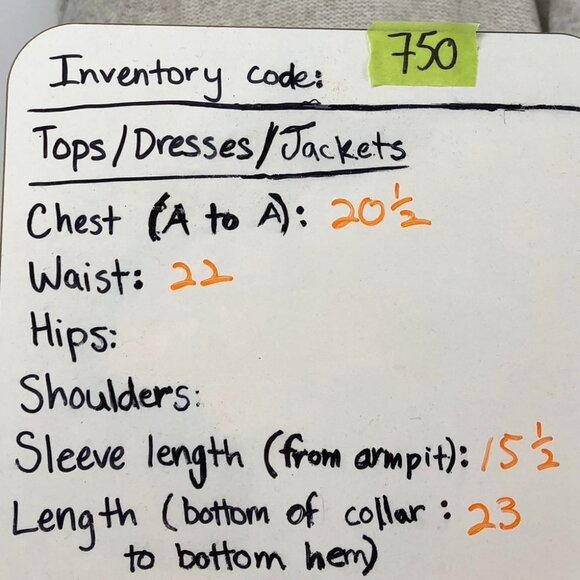 Inventory code: 750
Tops/Dresses/Jackets
Chest (A to A): 20 1/2
Waist: 22
Hips:
Shoulders:
Sleeve length (from armpit): 15 1/2
Length (bottom of collar : 23
to bottom hem)